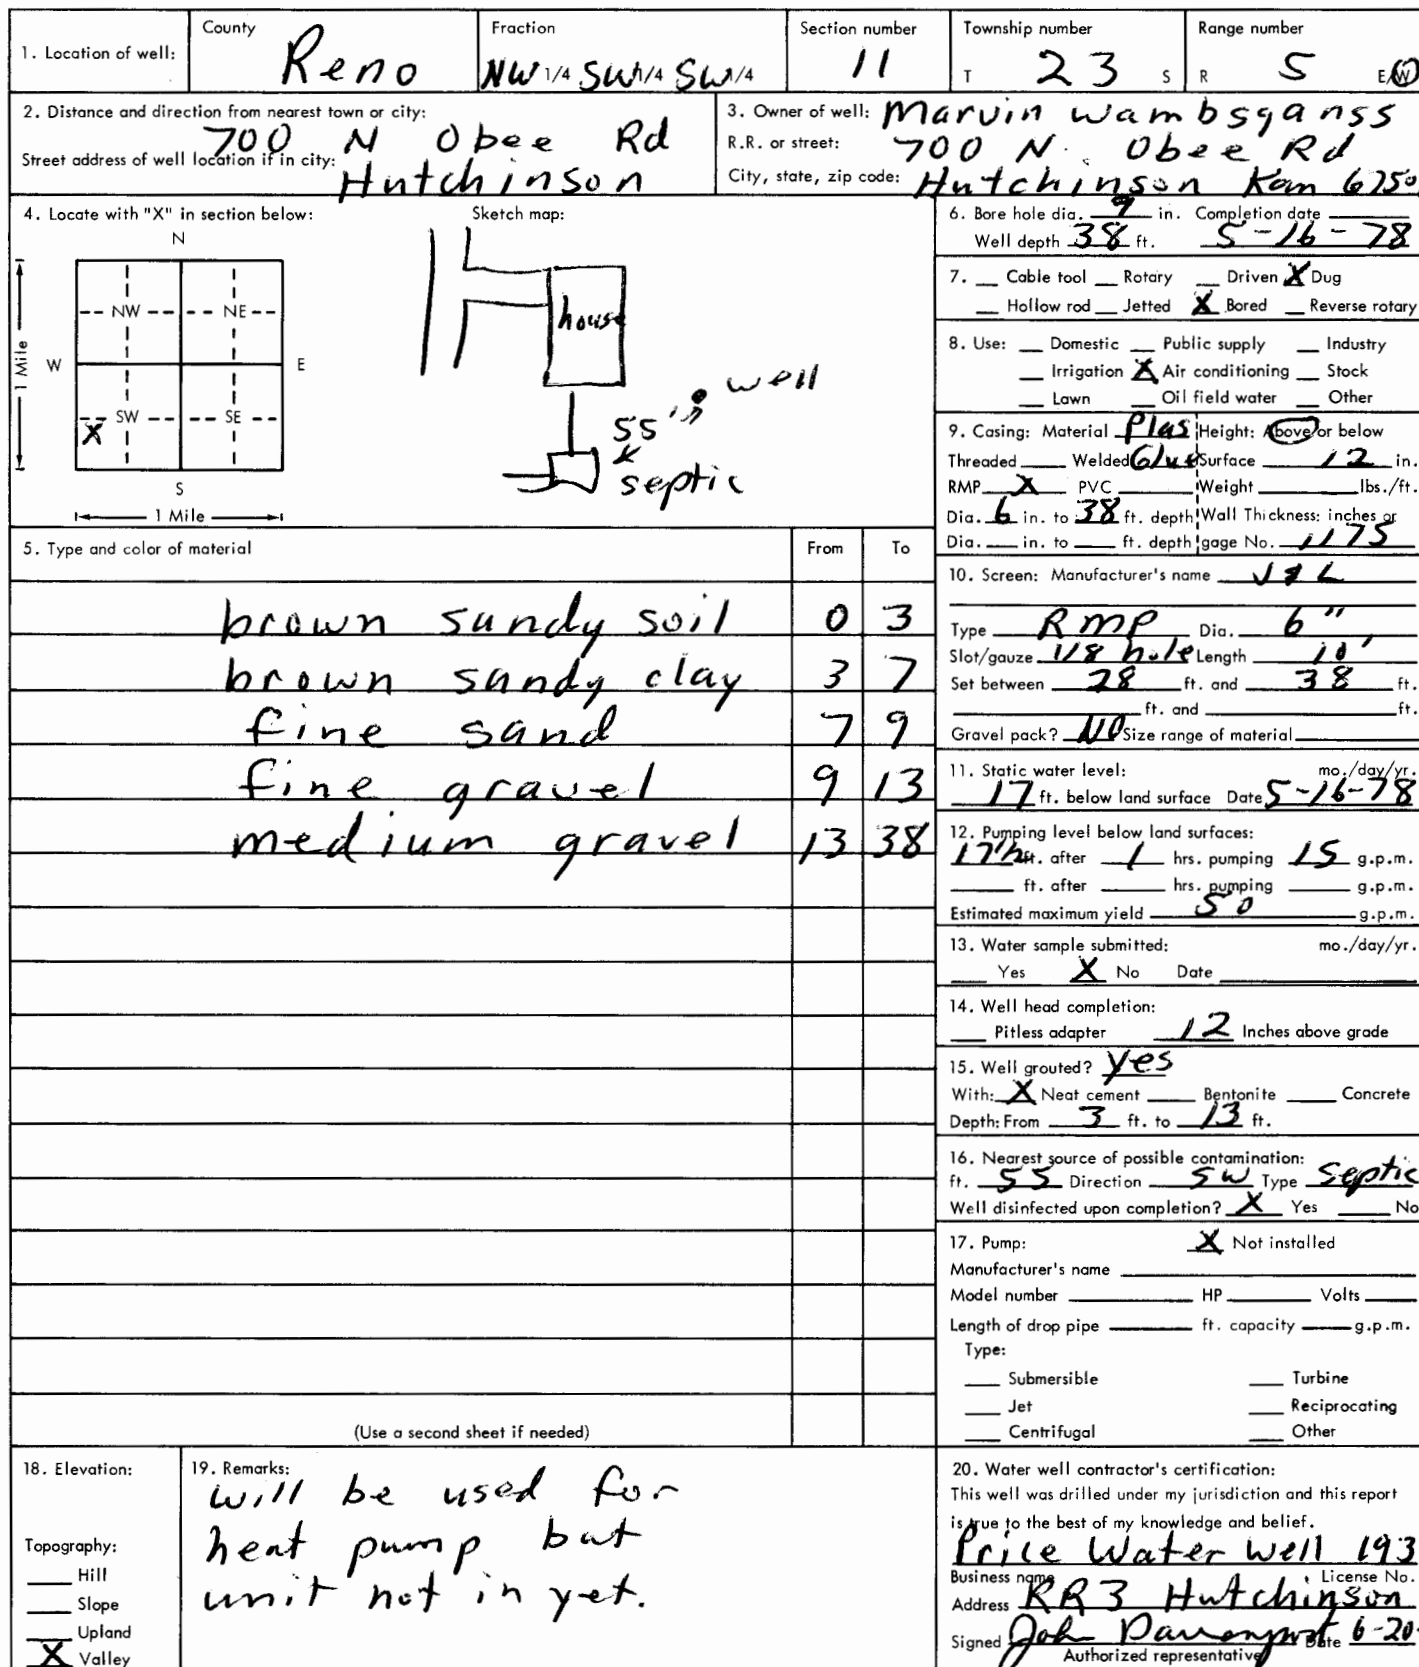 1. Location of well: County Reno Fraction NW 1/4 SW 1/4 SW 1/4 Section number 11 Township number T 23 S Range number R 5 E/W
2. Distance and direction from nearest town or city:
700 N Obee Rd
Street address of well location if in city:
Hutchinson
3. Owner of well: Marvin Wambsganss
R.R. or street: 700 N. Obee Rd
City, state, zip code: Hutchinson Kan 6750
4. Locate with "X" in section below:
N
NW NE
W E
SW SE
X
S
1 Mile
1 Mile
Sketch map:
house
well
55'
septic
5. Type and color of material From To
brown sandy soil 0 3
brown sandy clay 3 7
fine sand 7 9
fine gravel 9 13
medium gravel 13 38
(Use a second sheet if needed)
6. Bore hole dia. 9 in. Completion date
Well depth 38 ft. 5-16-78
7. __ Cable tool __ Rotary __ Driven X Dug
__ Hollow rod __ Jetted X Bored __ Reverse rotary
8. Use: __ Domestic __ Public supply __ Industry
__ Irrigation X Air conditioning __ Stock
__ Lawn __ Oil field water __ Other
9. Casing: Material Plas Height: Above or below
Threaded ___ Welded Glue Surface 12 in.
RMP X PVC ___ Weight ___ lbs./ft.
Dia. 6 in. to 38 ft. depth Wall Thickness: inches or
Dia. __ in. to __ ft. depth gage No. 1175
10. Screen: Manufacturer's name J & L
Type RMP Dia. 6"
Slot/gauze 1/8 hole Length 10'
Set between 28 ft. and 38 ft.
___ ft. and ___ ft.
Gravel pack? NO Size range of material
11. Static water level: mo./day/yr.
17 ft. below land surface Date 5-16-78
12. Pumping level below land surfaces:
17½ ft. after 1 hrs. pumping 15 g.p.m.
___ ft. after ___ hrs. pumping ___ g.p.m.
Estimated maximum yield 50 g.p.m.
13. Water sample submitted: mo./day/yr.
__ Yes X No Date
14. Well head completion:
__ Pitless adapter 12 Inches above grade
15. Well grouted? yes
With: X Neat cement ___ Bentonite ___ Concrete
Depth: From 3 ft. to 13 ft.
16. Nearest source of possible contamination:
ft. 55 Direction SW Type septic
Well disinfected upon completion? X Yes ___ No
17. Pump: X Not installed
Manufacturer's name
Model number ___ HP ___ Volts
Length of drop pipe ___ ft. capacity ___ g.p.m.
Type:
__ Submersible __ Turbine
__ Jet __ Reciprocating
__ Centrifugal __ Other
18. Elevation:
Topography:
__ Hill
__ Slope
__ Upland
X Valley
19. Remarks:
will be used for
heat pump but
unit not in yet.
20. Water well contractor's certification:
This well was drilled under my jurisdiction and this report
is true to the best of my knowledge and belief.
Price Water Well 193
Business name License No.
Address RR3 Hutchinson
Signed John Davenport Date 6-20-
Authorized representative